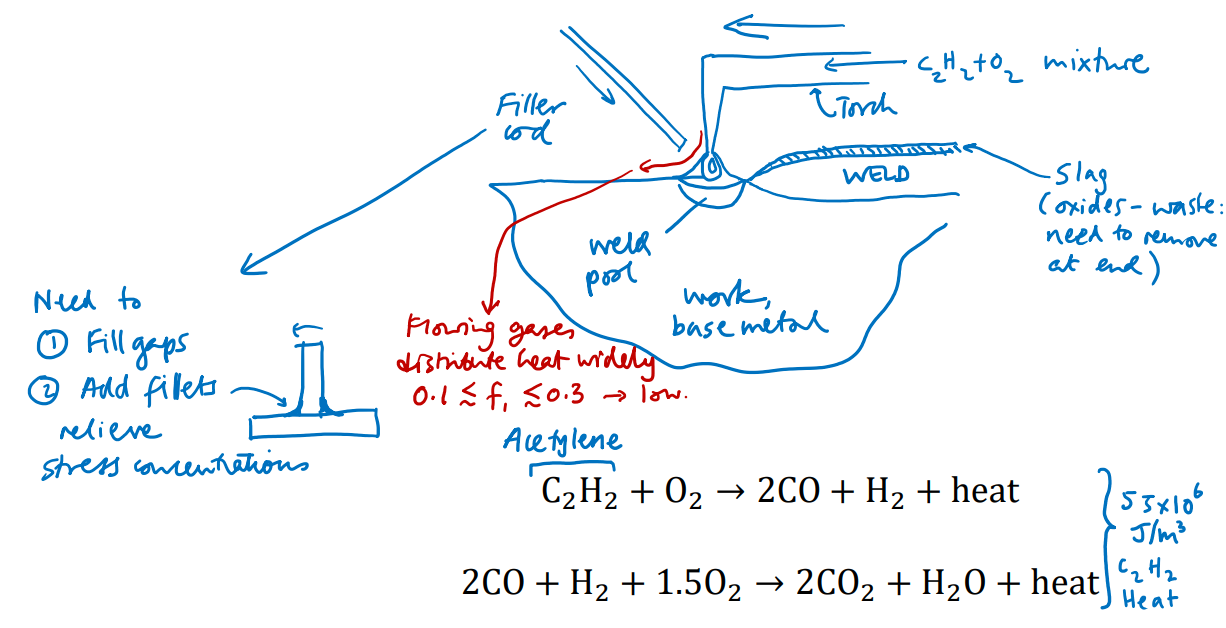 C₂H₂+O₂ mixture
Torch
Filler
rod
WELD
Slag
(oxides - waste:
need to remove
at end)
weld
pool
work,
base metal
Flowing gases,
distribute heat widely
0.1 ≲ f₁ ≲ 0.3 → low.
Need to
① Fill gaps
② Add fillets
relieve
stress concentrations
Acetylene
C₂H₂ + O₂ → 2CO + H₂ + heat
2CO + H₂ + 1.5O₂ → 2CO₂ + H₂O + heat
55×10⁶
J/m³
C₂H₂
Heat